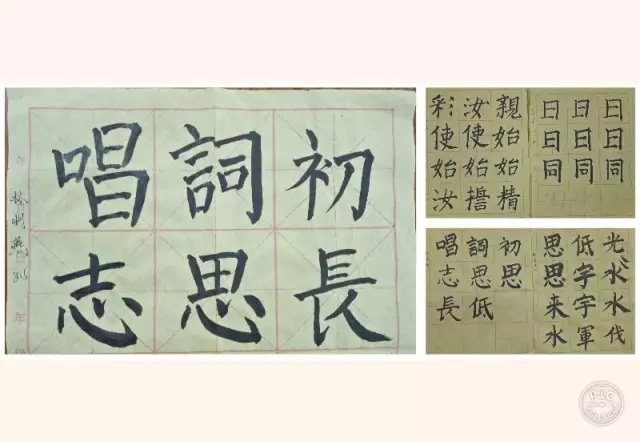 唱詞初
志思長
彩汝親
使使始
始始始
汝精
日日日
日日日
同同同
唱詞初
志思思
長低
思低光
思字水
来字水
水軍伐